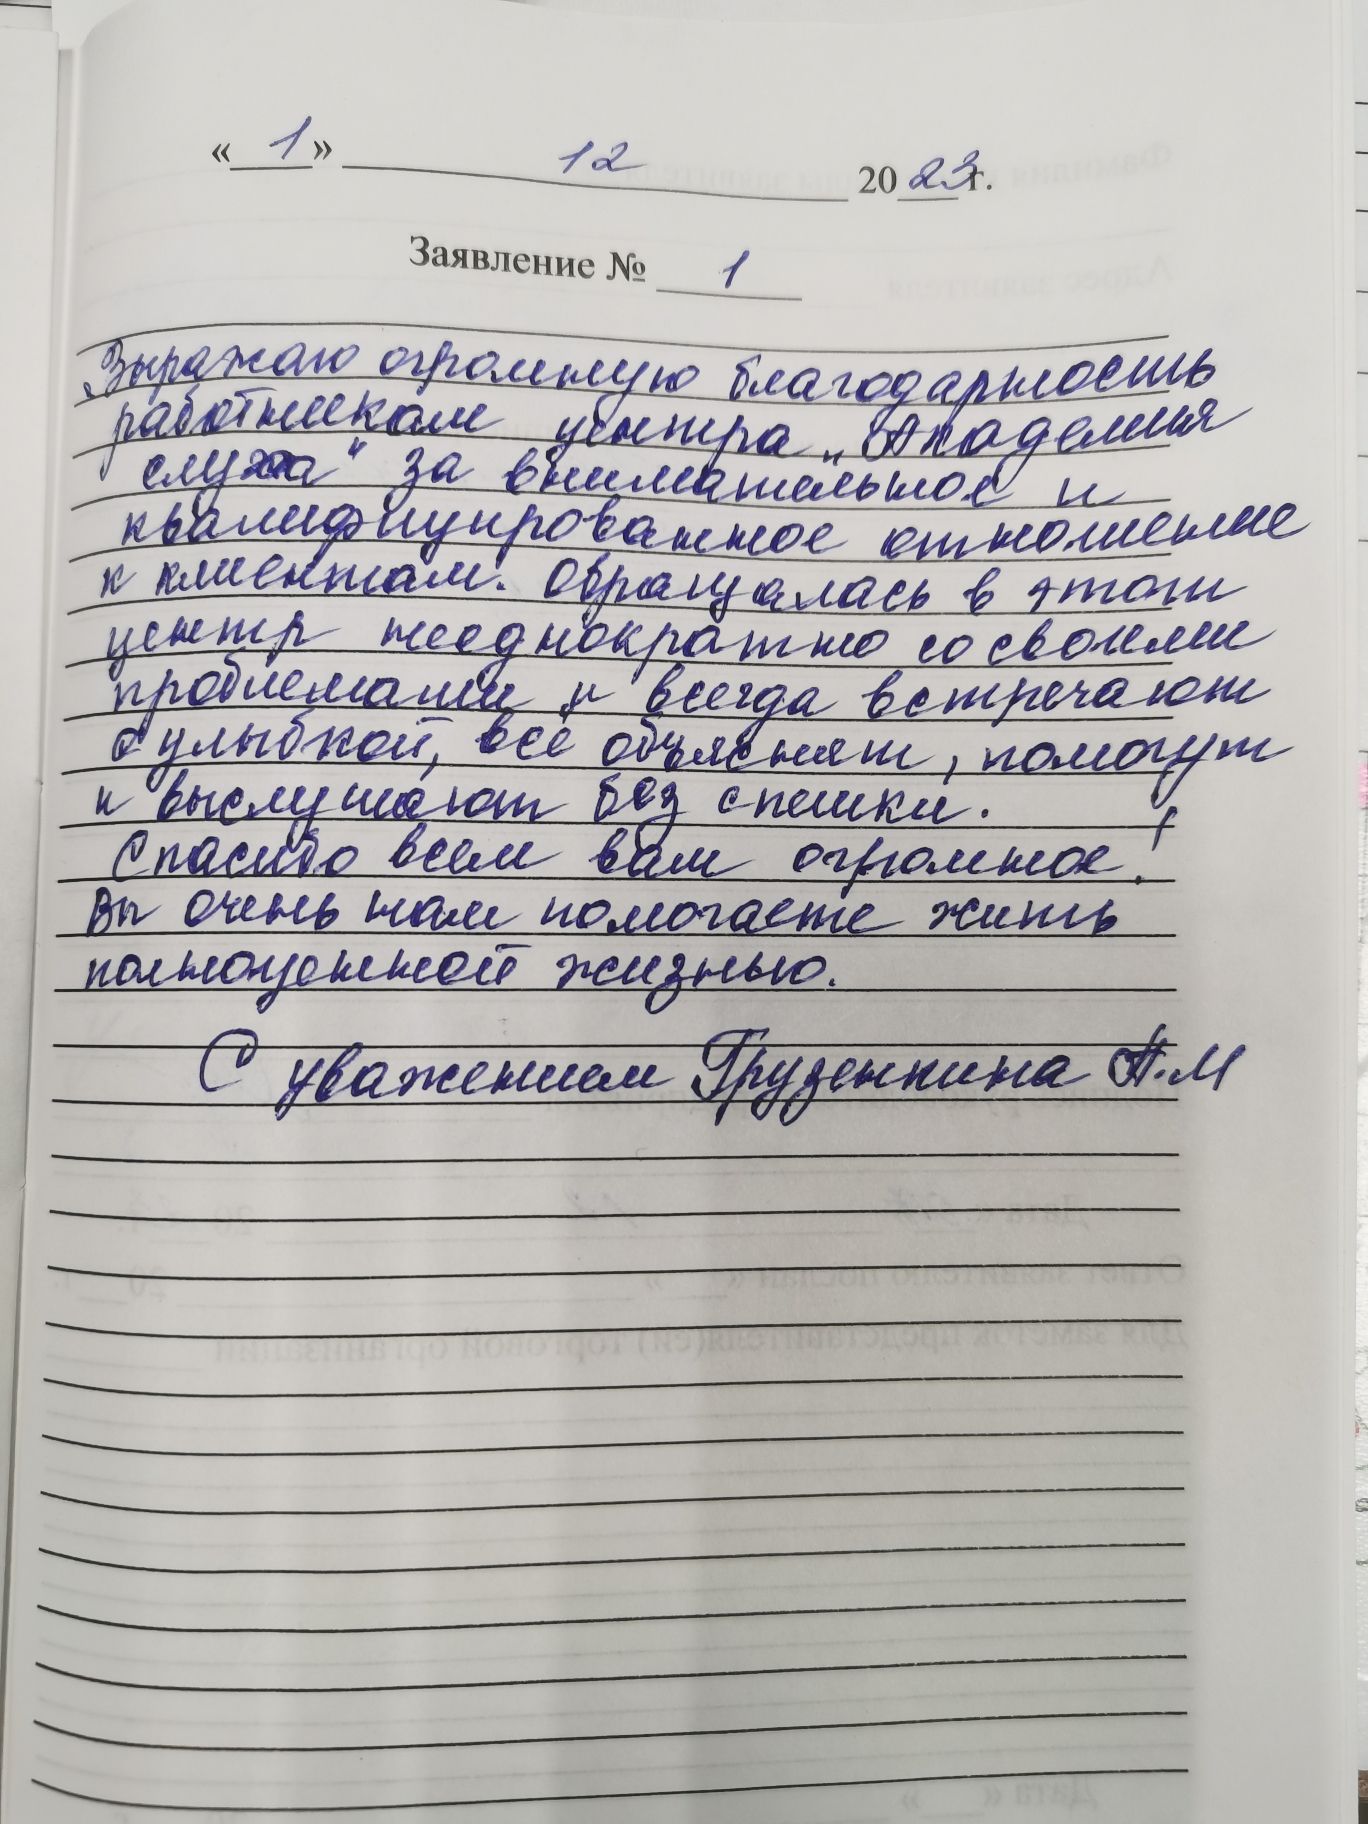 « 1 » 12 2023г.
Заявление № 1
Выражаю огромную благодарность
работникам центра „Академия
слуха" за внимательное и
квалифицированное отношение
к клиентам. Обращалась в этот
центр неоднократно со своими
проблемами и всегда встречают
с улыбкой, всё объяснят, помогут
и выслушают без спешки.
Спасибо всем вам огромное!
Вы очень нам помогаете жить
полноценной жизнью.
С уважением Грузенкина А.М